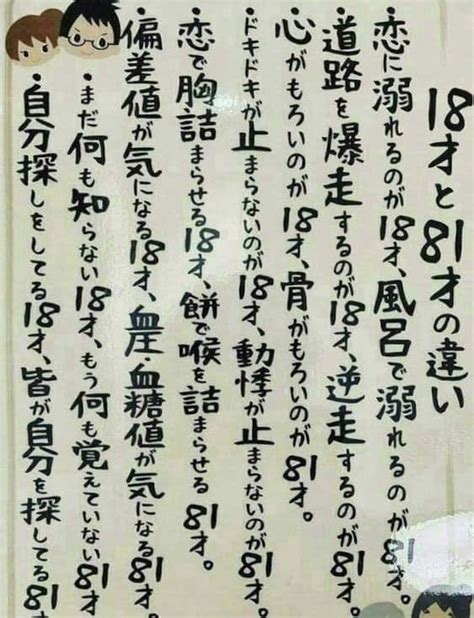 18才と81才の違い
・恋に溺れるのが18才、風呂で溺れるのが81才。
・道路を爆走するのが18才、逆走するのが81才。
・心がもろいのが18才、骨がもろいのが81才。
・ドキドキが止まらないのが18才、動悸が止まらないのが81才。
・恋で胸詰まらせる18才、餅で喉を詰まらせる81才。
・偏差値が気になる18才、血圧・血糖値が気になる81才。
・まだ何も知らない18才、もう何も覚えていない81才
・自分探しをしてる18才、皆が自分を探してる81